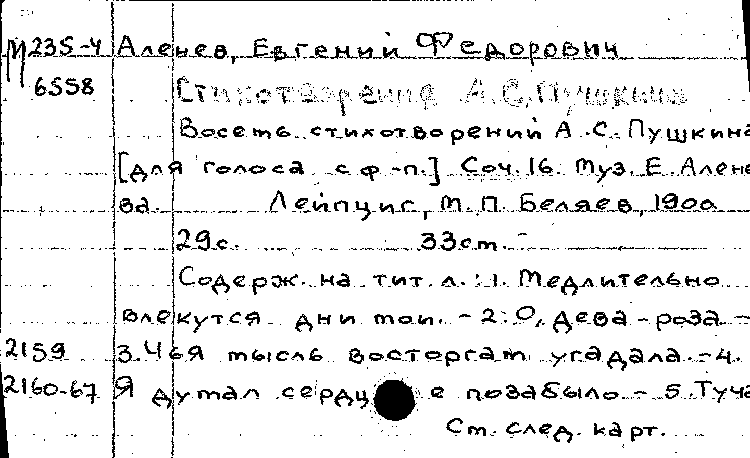 М 235-4 Аленев, Евгений Федорович
6558 Стихотворения А.С. Пушкина
Восемь стихотворений А.С. Пушкина
[для голоса с ф-п.] Соч. 16. Муз. Е. Алене
ва. Лейпциг, М.П. Беляев, 1900
29с. 33см.
Содерж. на тит. л.: 1. Медлительно
влекутся дни мои. - 2. О, дева-роза -
2159 3. Чья мысль восторгам угадала. - 4.
2160-67 Я думал сердц е позабыло - 5. Туча
См. след. карт.